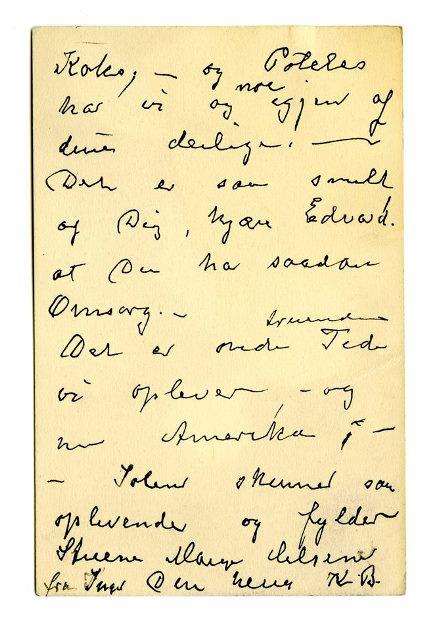 Koks, — og Poteter
noe
har vi og igjen af
dine deilige. —
Det er saa snilt
af Dig, kjære Edvard.
at Du har saadan
Omsorg. —
truende
Det er onde Tide
vi oplever, — og
nu Amerika! —
— Solen skinner saa
oplivende og fylder
Stuene Mange hilsener
fra Inger Din K. B.